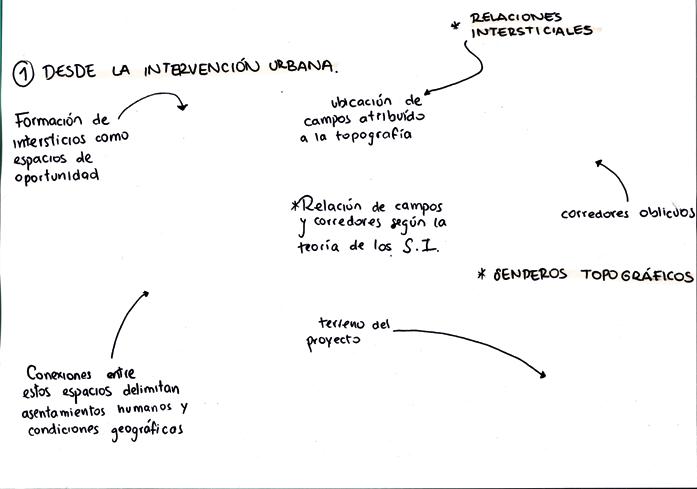 * RELACIONES
INTERSTICIALES
① DESDE LA INTERVENCIÓN URBANA.
Formación de
intersticios como
espacios de
oportunidad
ubicación de
campos atribuido
a la topografía
*Relación de campos
y corredores según la
teoría de los S.I.
corredores oblicuos
* SENDEROS TOPOGRÁFICOS
terreno del
proyecto
Conexiones entre
estos espacios delimitan
asentamientos humanos y
condiciones geográficas